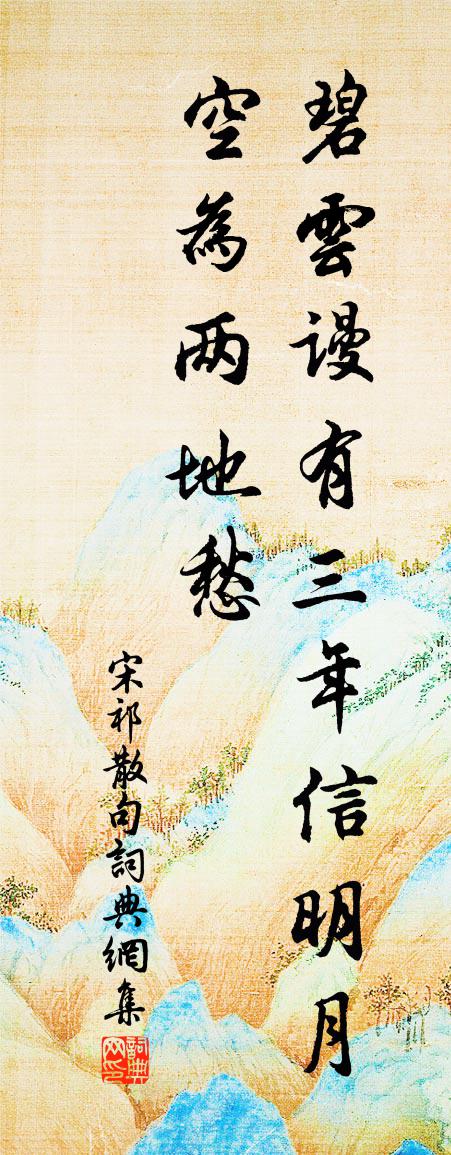 碧雲謾有三年信明月
空為两地愁
宋祁散句詞典網集
詞典
网印